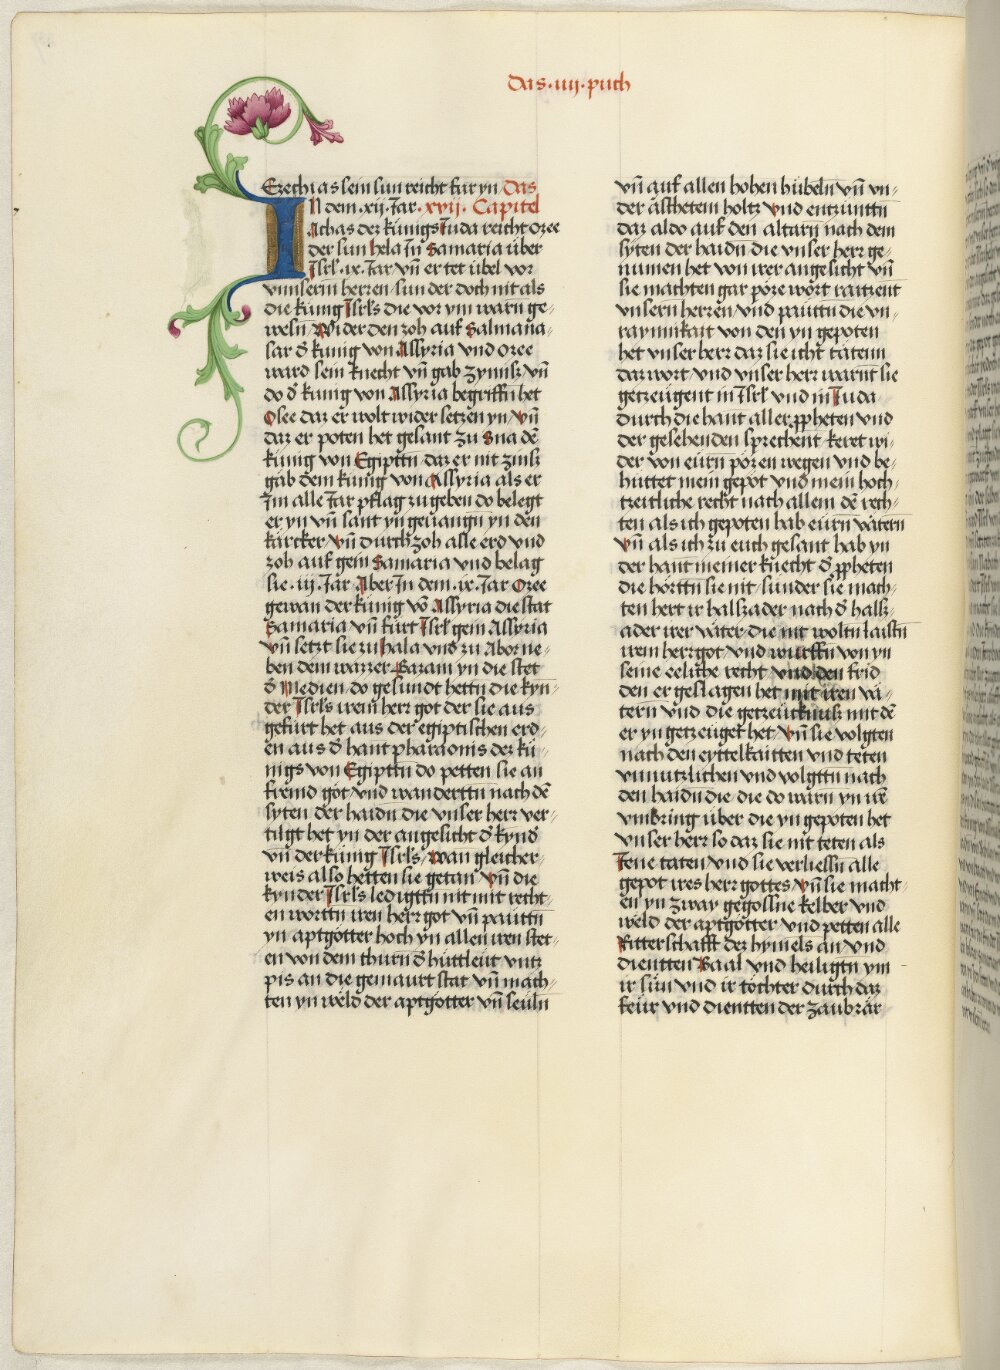 Das·iiij·puch
Ezechias sein sun reicht für yn / Das
In dem·xij·Jar·xvij·Capitel
Achas dez künigs Juda reicht ozee
der sun hela Jn Samaria über
Jsrl·ix·Jar vn̄ er tet übel vor
vnnserm herren / sun der doch nit als
die künig Jsrls die vor ym warn ge⸗
wesn̄ Wider den zoh auf Salmana⸗
sar d̄ künig von Assyria vnd ozee
ward sein knecht vn̄ gab zynnsz vn̄
do d̄ künig von Assyria begriffn̄ het
Osee daz er wolt wider setzen yn Vn̄
daz er poten het gesant zu Sua dē
künig von Egipttn̄ daz er nit zinsz
gab dem künig von Assyria als er
Jm alle Jar pflag zugeben do belegt
er yn vn̄ sant yn geuangn̄ yn den
karcker Vn̄ durchzoh alle erd vnd
zoh auf gein Samaria vnd belag
sie·iij·Jar Aber Jn dem·ix·Jar Ozee
gewan der künig vō Assyria die stat
Samaria vn̄ fürt Jsrl gem Assyria
Vn̄ setzt sie zu hala vnd zu Abor ne⸗
ben dem wazzer Gazam yn die stet
d̄ Medien do gesundt hettn̄ die kyn⸗
der Jsrls irem herr got der sie aus
gefürt het aus der egiptischen erd⸗
en aus d̄ hant pharaonis dez kü⸗
nigs von Egipttn̄ do petten sie an
fremd göt vnd wanderttn̄ nach dē
syten der haidn̄ die vnser herr ver⸗
tilgt het yn der angesicht d̄ kynd̄
vn̄ der künig Jsrls / wan gleicher⸗
weis also hetten sie getan Vn̄ die
kynder Jsrls ledigttn̄ nit mit recht⸗
en worttn̄ iren herr got vn̄ pauttn̄
yn aptgötter hoch yn allen iren stet⸗
en von dem thurn d̄ hüttleüt vntz
pis an die gemaurt stat vn̄ mach⸗
ten yn weld der aptgötter vn̄ seüln
vn̄ auf allen hohen hübeln vn̄ vn⸗
der ästhetem holtz Vnd entzünttn̄
daz aldo auf den altarn nach dem
syten der haidn̄ die vnser herr ge⸗
numen het von irer angesicht vn̄
sie machten gar pöze wört raitzent
vnsern herren vnd pauttn̄ die vn⸗
raynnikait von den yn gepoten
het vnser herr daz sie icht tätenn
daz wort vnd vnser herr warnt sie
getzeügent in Jsrl vnd in Juda
durch die hant aller ꝓpheten vnd
der gesehenden sprechent keret wi⸗
der von eürn pözen wegen vnd be⸗
hüttet mein gepot vnd mein hoch⸗
tzeitliche recht nach allem dē rech⸗
ten als ich gepoten hab eürn vätern
Vn̄ als ich zu euch gesant hab yn
der hant meiner knecht d̄ ꝓpheten
die hörttn̄ sie nit sunder sie mach⸗
ten hert ir halszader nach d̄ halsz⸗
ader irer väter die nit woltn̄ laistn̄
irem herr got vnd wurffn̄ von yn
seine eeliche recht vnd den frid
den er geslagen het mit iren vä⸗
tern vnd die getzeücknusz mit dē
er yn getzeüget het Vn̄ sie volgten
nach den eyttelkaitten vnd teten
vnnutzlichen vnd volgttn̄ nach
den haidn̄ die die do warn yn irē
vmbring über die yn gepoten het
vnser herr so daz sie nit teten als
Jene taten vnd sie verliessn̄ alle
gepot ires herr gottes Vn̄ sie macht⸗
en yn zway gegossne kelber vnd
weld der aptgötter vnd petten alle
Ritterschafft dez hymels an vnd
dientten Baal vnd heiligtn̄ ym
ir sün vnd ir töchter durch daz
feür vnd dientten der zaubrär